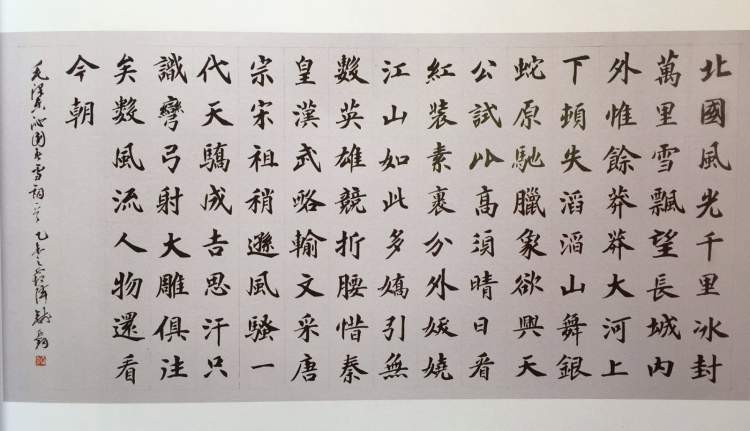 北國風光千里冰封
萬里雪飄望長城内
外惟餘莽莽大河上
下頓失滔滔山舞銀
蛇原馳臘象欲興天
公試比高須晴日看
紅裝素裹分外妖嬈
江山如此多嬌引無
数英雄競折腰惜秦
皇漢武略輸文采唐
宗宋祖稍遜風騷一
代天驕成吉思汗只
識彎弓射大雕俱往
矣数風流人物還看
今朝
毛澤東沁園春雪詞一首